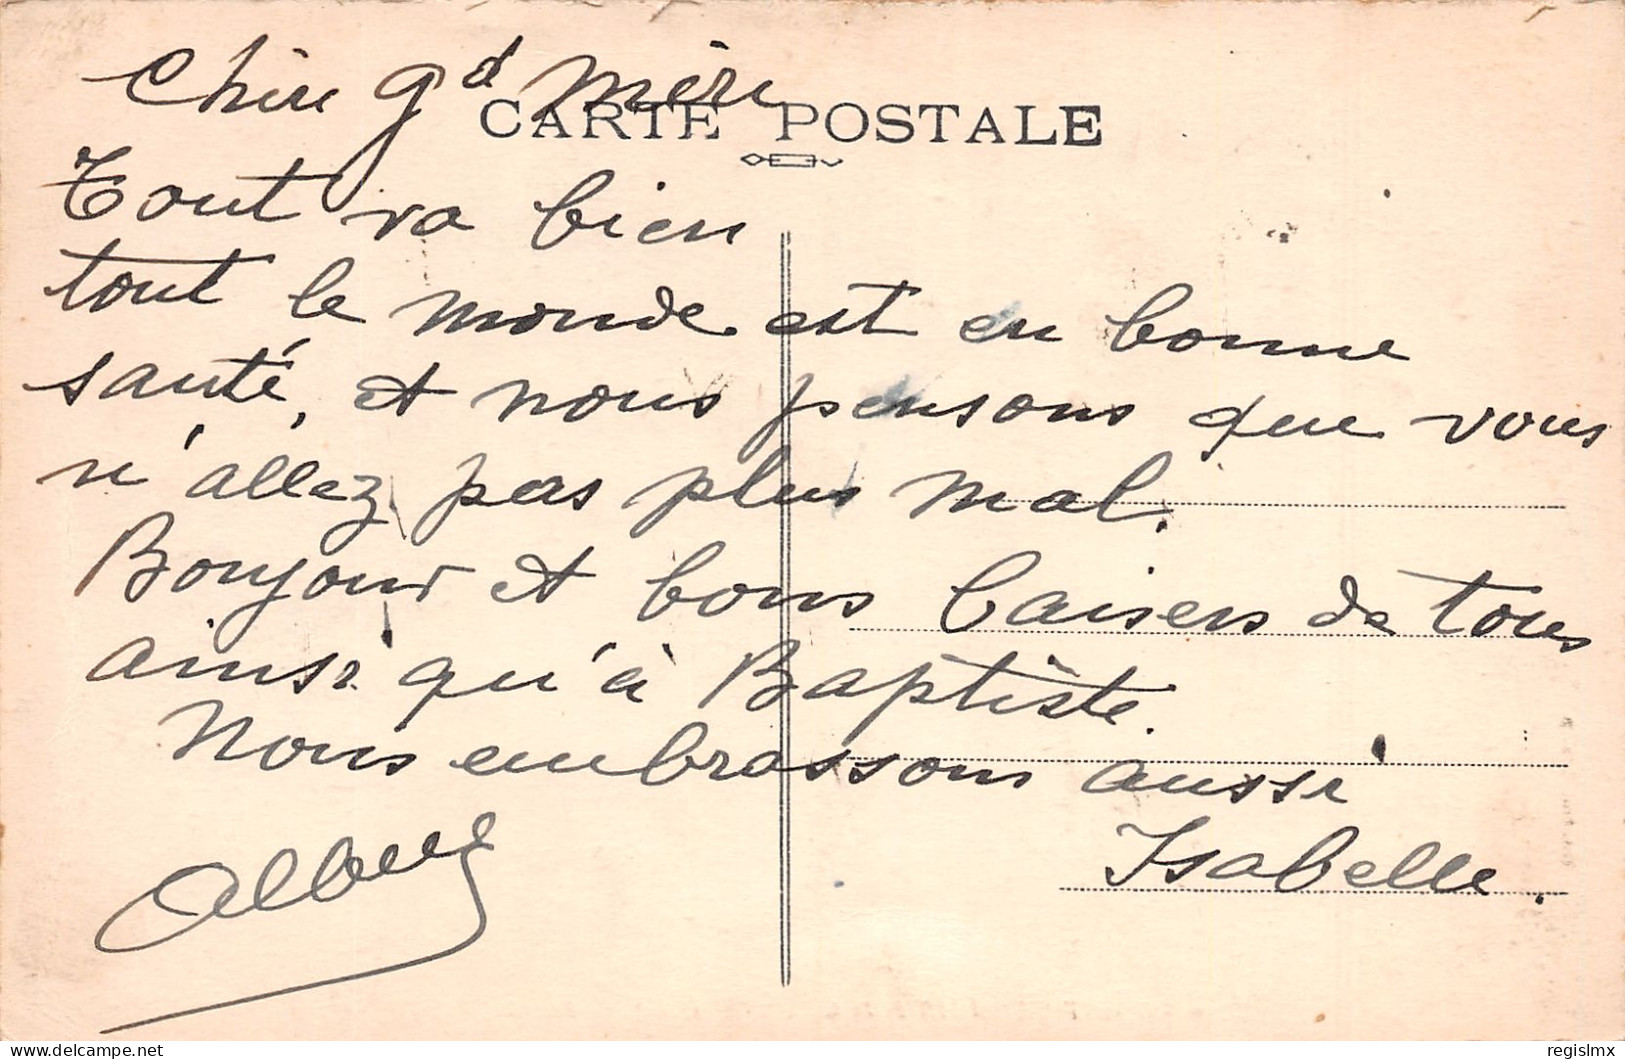 Chère gd Mère
CARTE POSTALE
Tout va bien
tout le monde est en bonne
santé, et nous pensons que vous
n'allez pas plus mal.
Bonjour et bons baisers de tous
ainsi qu'à Baptiste.
Nous embrassons aussi
Isabelle.
delcampe.net
regislmx